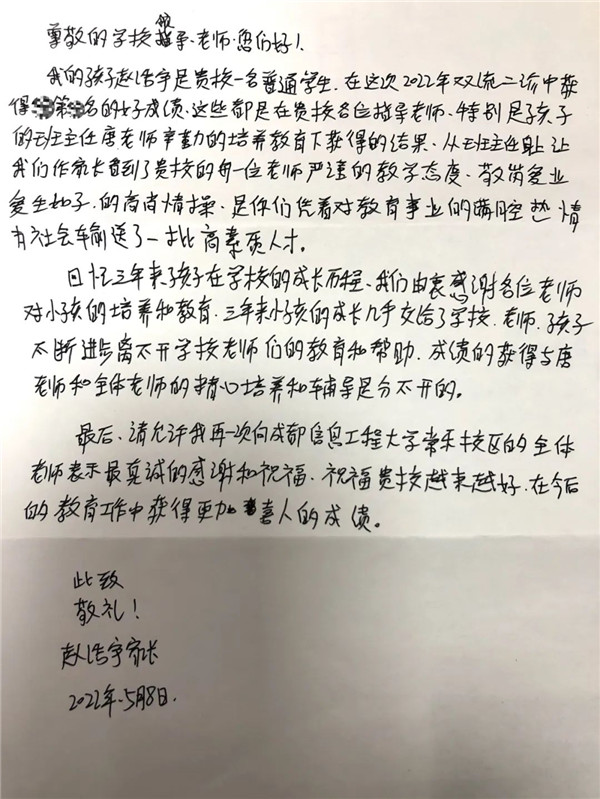 尊敬的学校领导、老师.您们好!
我的孩子赵浩宇是贵校一名普通学生.在这次2022年双流二诊中获
得 第 名的好成绩.这些都是在贵校各位指导老师、特别是孩子
的班主任唐老师辛勤的培养教育下获得的结果.从班主任身上让
我们作家长看到了贵校的每一位老师严谨的教学态度、敬岗爱业
爱生如子.的高尚情操、是你们凭着对教育事业的满腔热情
为社会输送了一批高素质人才。
回忆三年来孩子在学校的成长历程、我们由衷感谢各位老师
对小孩的培养和教育.三年来小孩的成长几乎交给了学校、老师、孩子
不断进步离不开学校老师们的教育和帮助.成绩的获得与唐
老师和全体老师的精心培养和辅导是分不开的。
最后、请允许我再一次向成都信息工程大学常乐校区的全体
老师表示最真诚的感谢和祝福、祝福贵校越来越好、在今后
的教育工作中获得更加喜人的成绩。
此致
敬礼!
赵浩宇家长
2022年.5月8日.